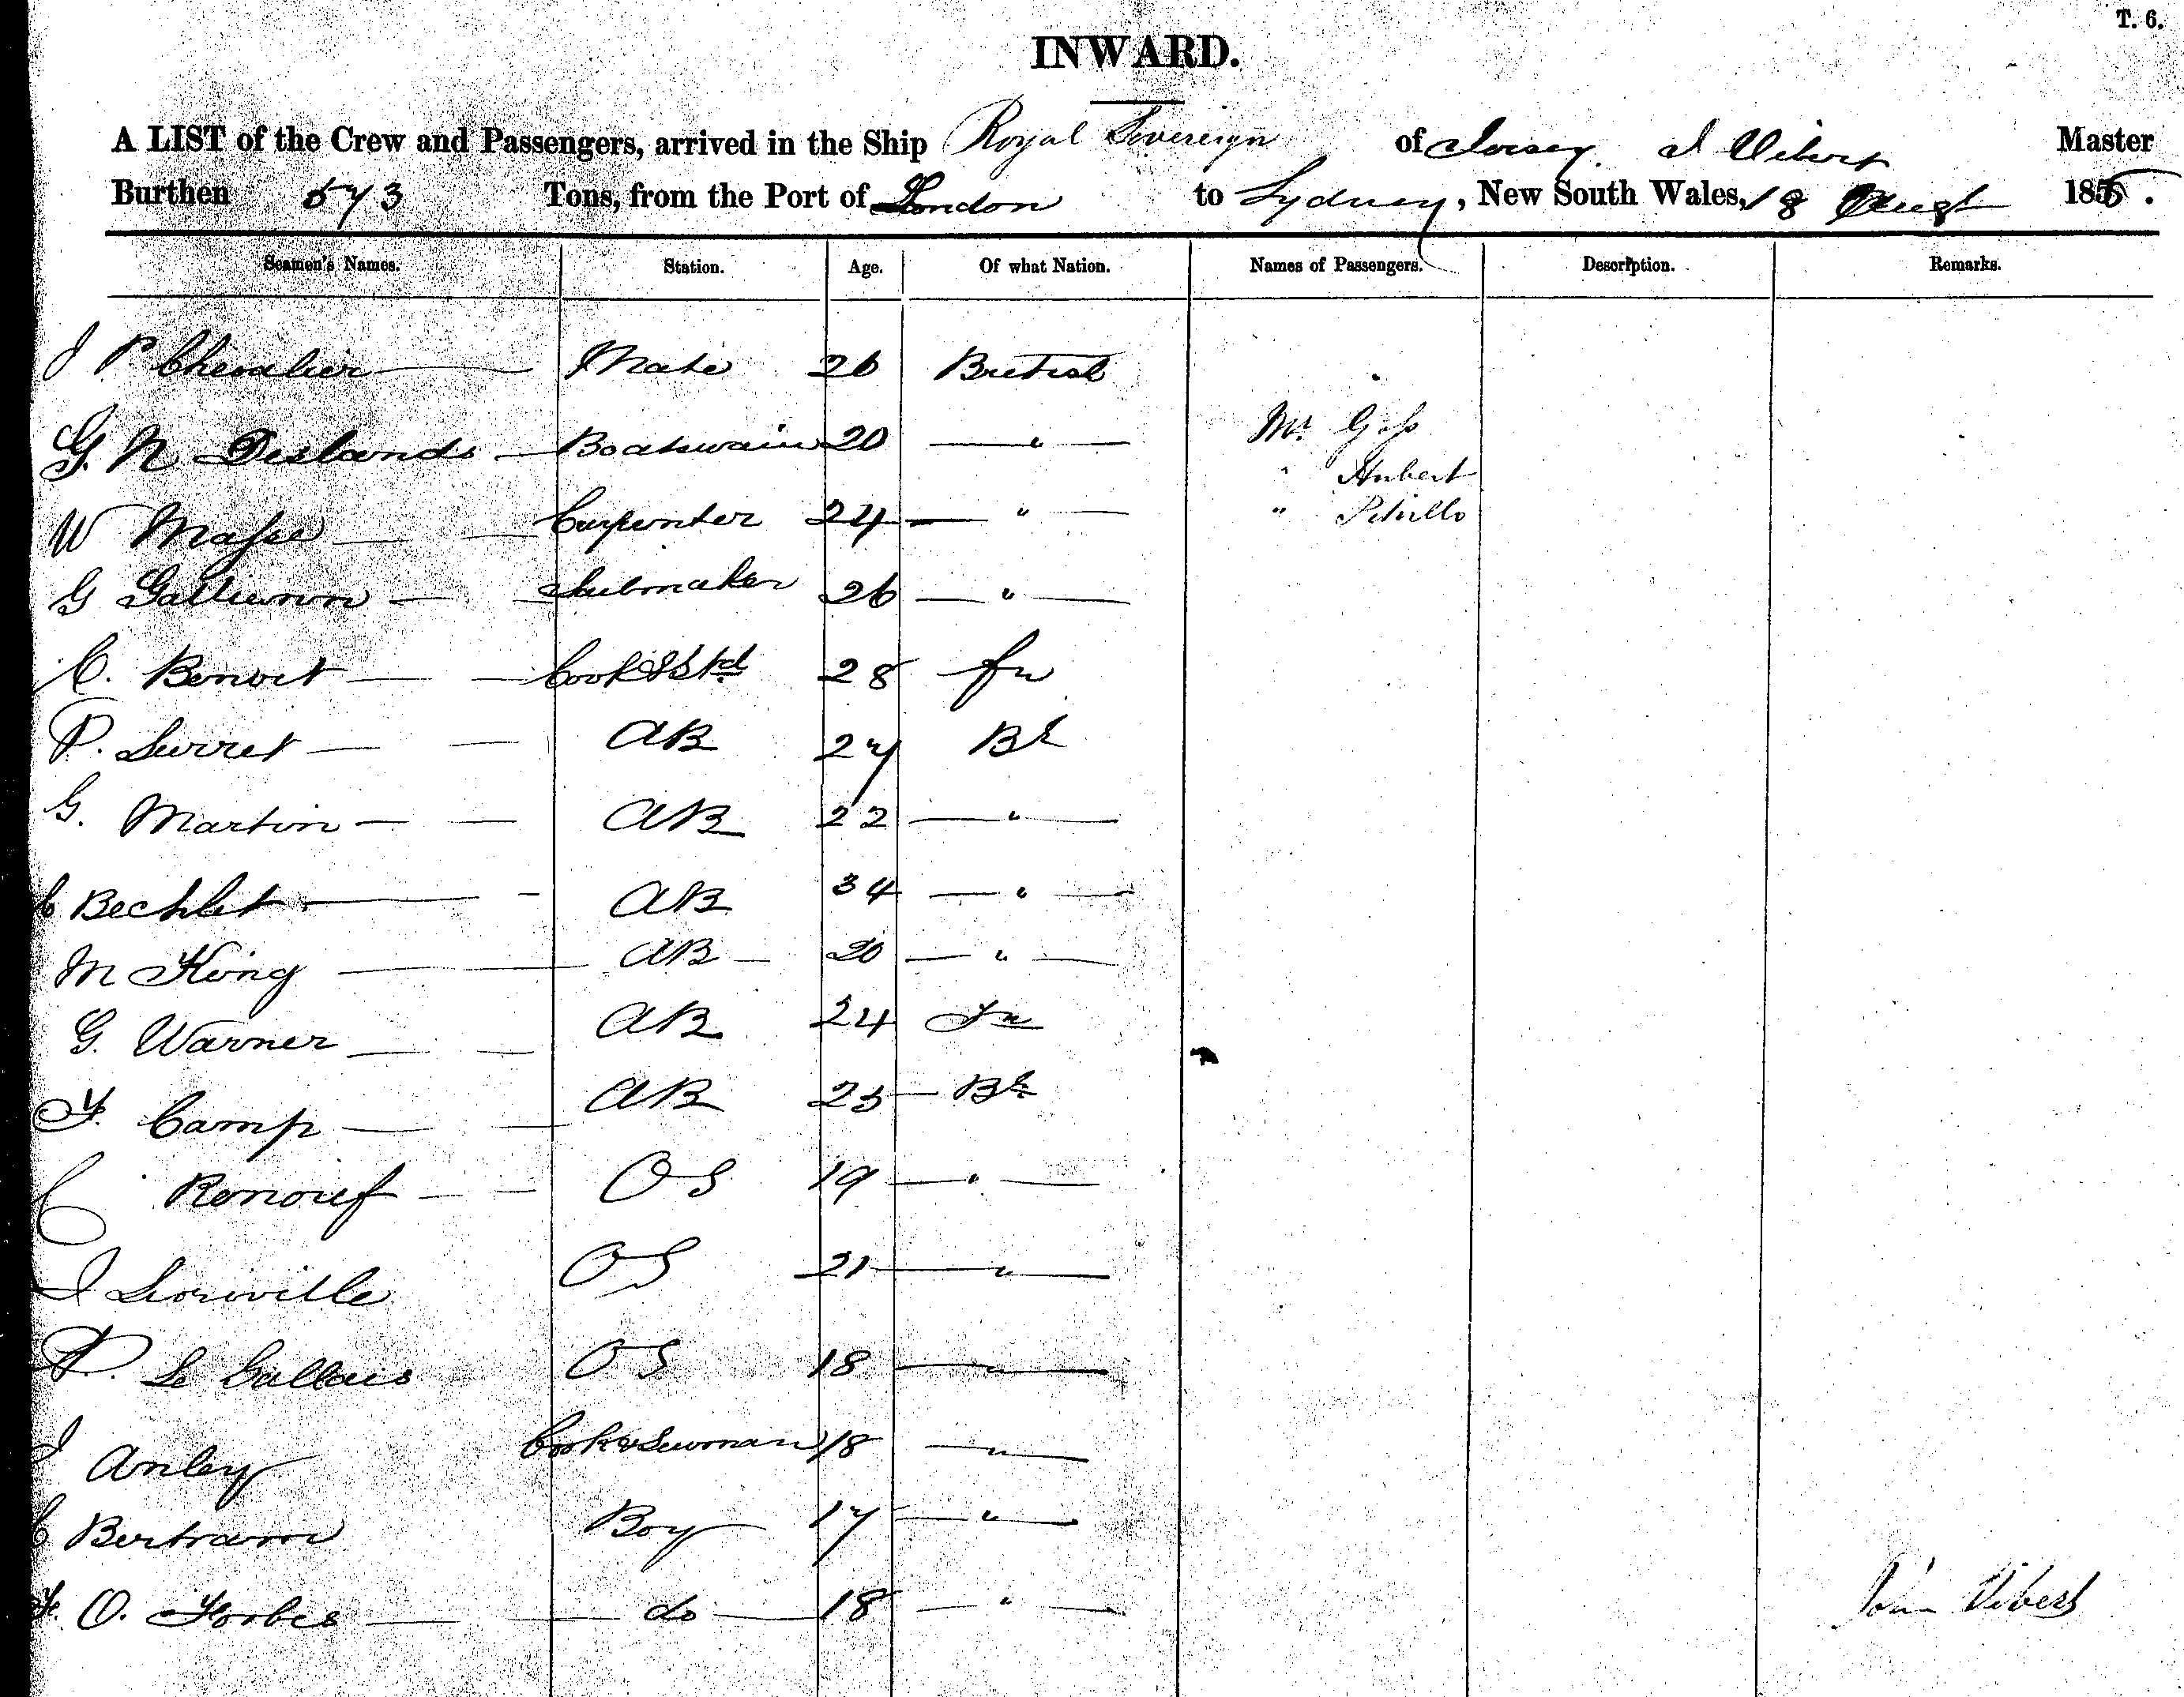 T. 6.
INWARD.
A LIST of the Crew and Passengers, arrived in the Ship Royal Sovereign of Jersey. J Vibert Master
Burthen 573 Tons, from the Port of London to Sydney, New South Wales, 18 Augst 1855.
Seamen's Names. Station. Age. Of what Nation. Names of Passengers. Description. Remarks.
J P. Chevalier Mate 26 British
G. N Deslands Boatswain 20 " Mr. Goss
" Hubert
W Masse Carpenter 24 " " 
G Gallienn 26 "
C. Benoit Cook & Std 28 Fr
P. Surret AB 27 Br
G. Martin AB 22 "
C Bechlet AB 34 "
M King AB 20 "
G. Warner AB 24
F. Camp AB 23 Br
C Renouf OS 19 "
J OS 21 "
P. Le Gallais OS 18 "
J Anley Cook & 18 "
C Bertram Boy 17 "
F. O. Forbes do 18 "
John Vibert